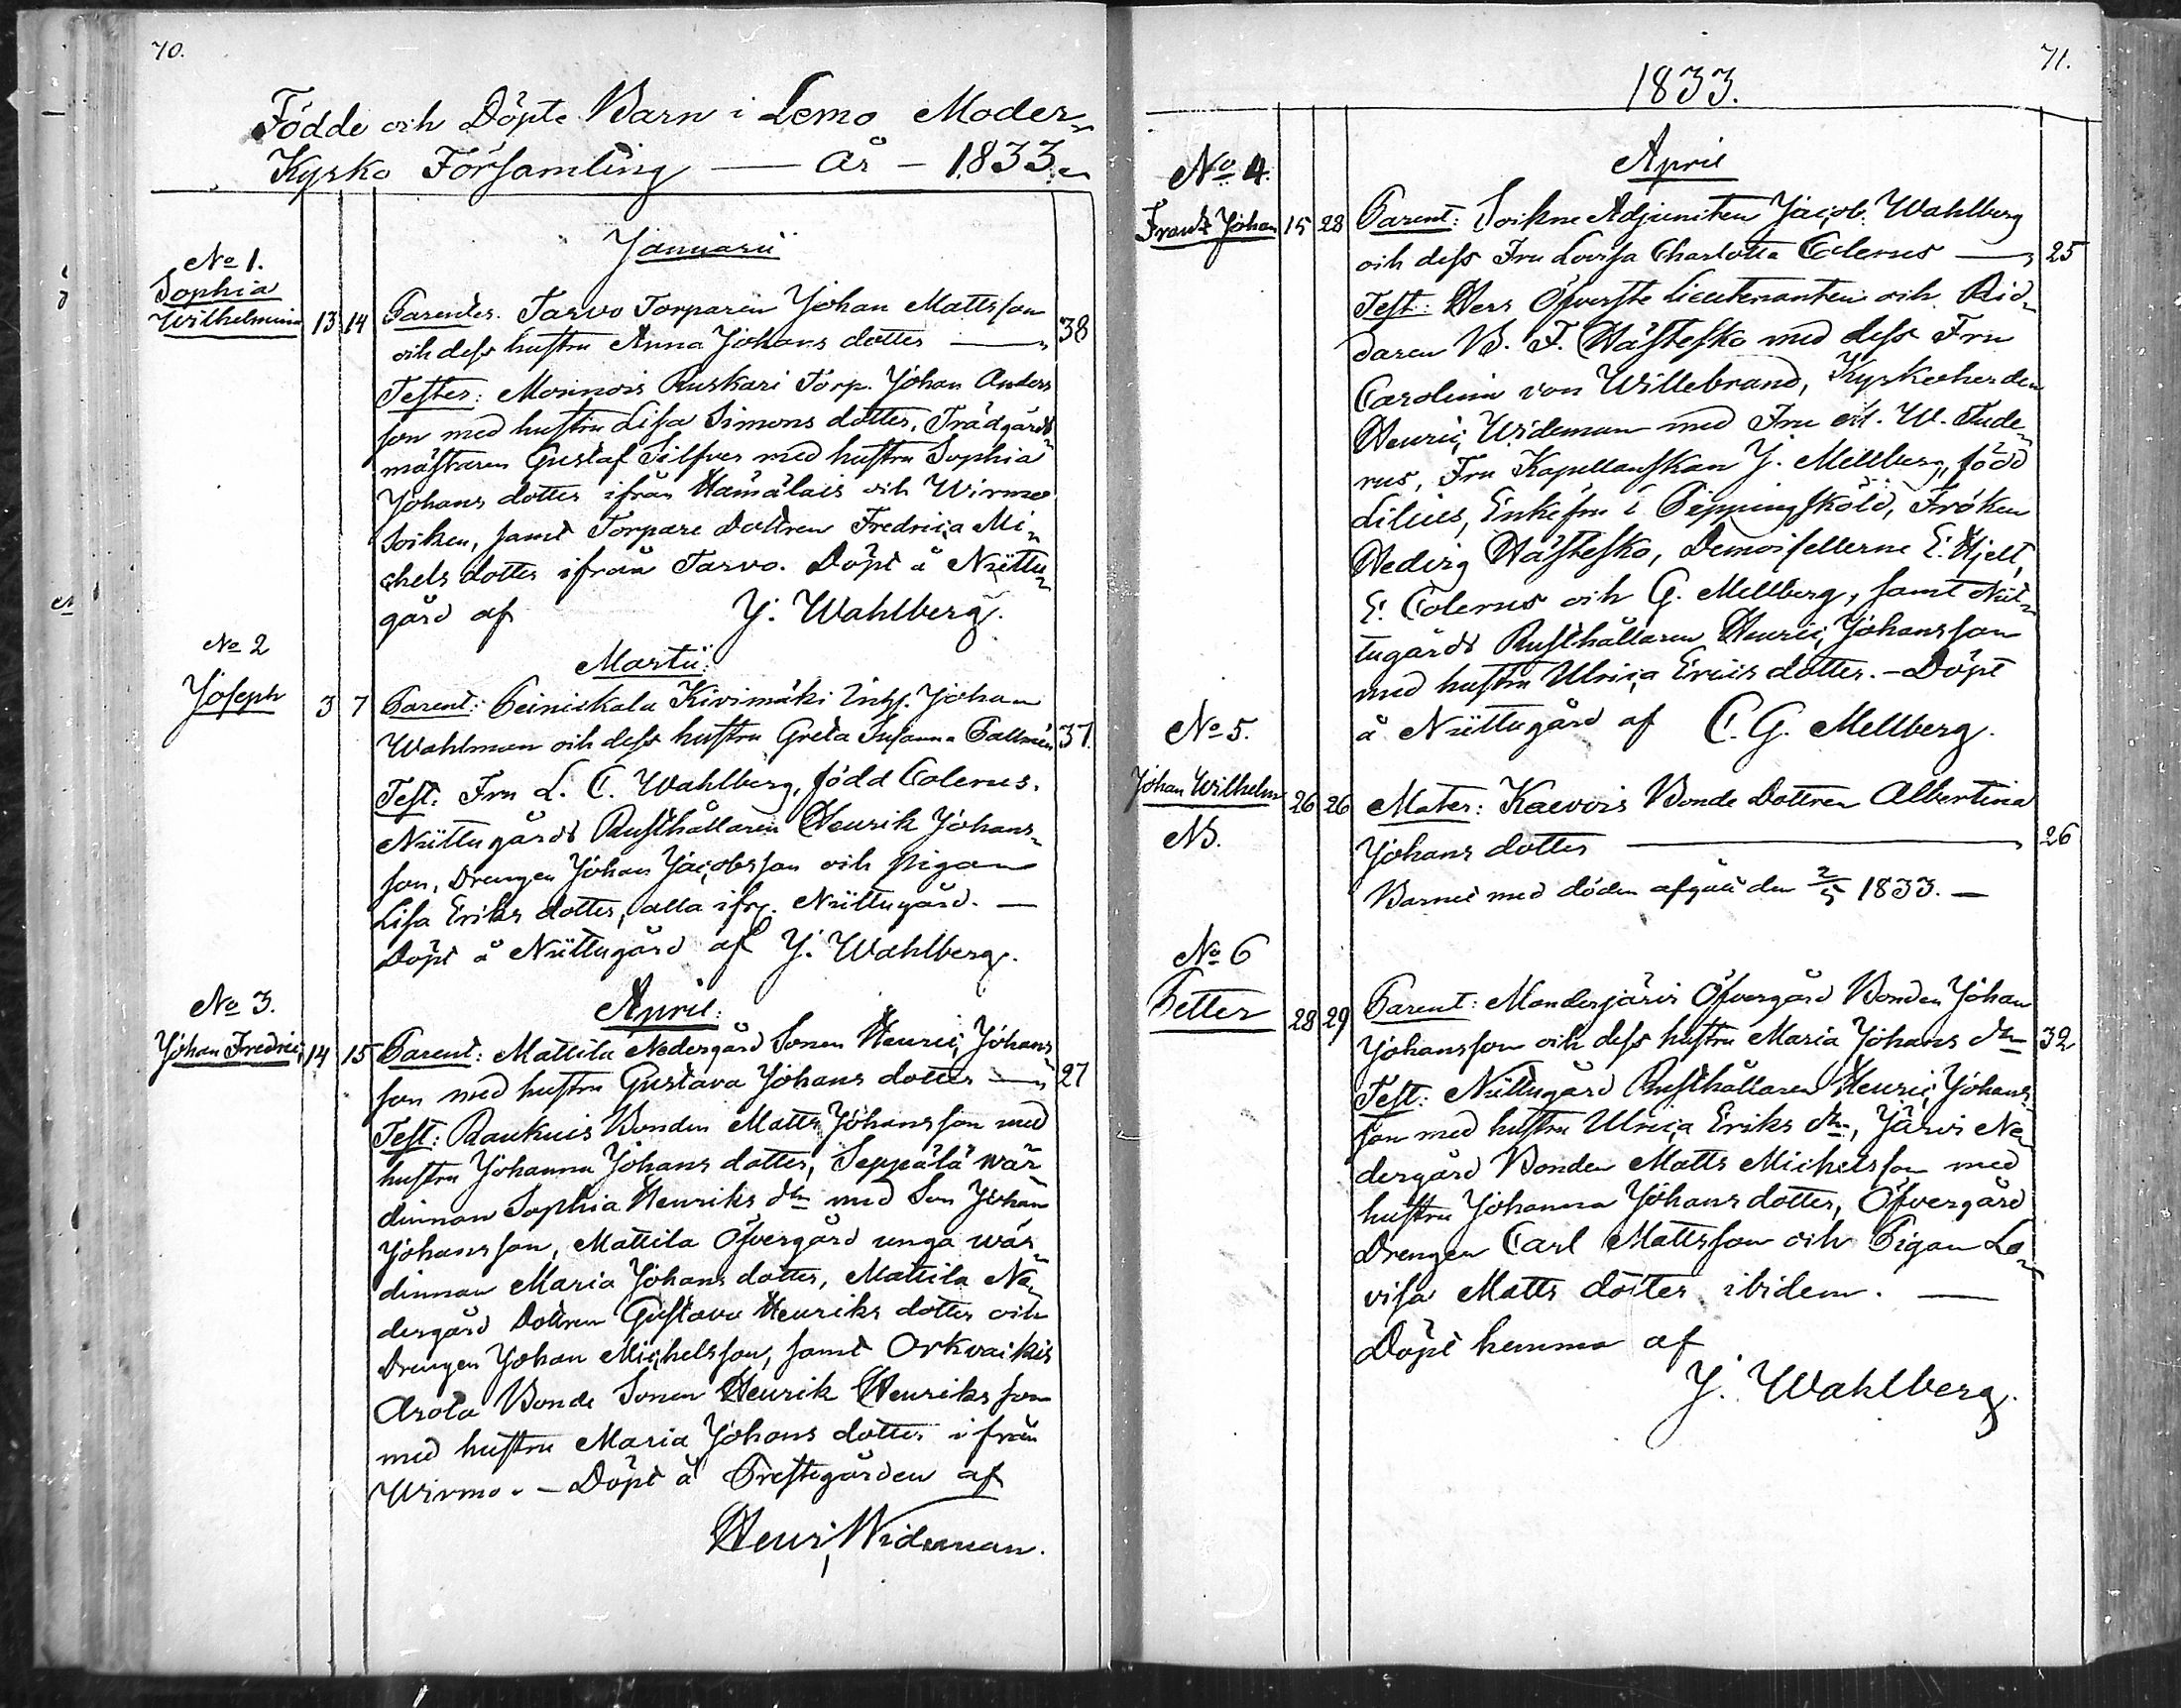 70.
Födde och Döpte Barn i Lemo Moder-
Kyrko Församling — År — 1833.
Januarii
No 1.
Sophia
Wilhelmina 13 14 Parentes. Tarvo Torparen Johan Mattsson
och dess hustru Anna Johans dotter — 38
Testes: Moinois Ruskari Torp. Johan Anders
son med hustru Lisa Simons dotter, Trädgårds
mästaren Gustaf Silfver med hustru Sophia
Johans dotter ifrån Hämälais och Wirmo
Socken, samt Torpare Dottren Fredrica Mi-
chels dotter ifrån Tarvo. Döpt å Niittu-
gård af J. Wahlberg.
Martii:
No 2
Joseph 3 7 Parent: Peiniskala Kivimäki Inhs. Johan
Wahlman och dess hustru Greta Susanna Pallmén 37.
Test: Fru L. C. Wahlberg, född Colerus.
Niittugårds Rusthållaren Henrik Johans-
son, Drengen Johan Jacobsson och pigan
Lisa Eriks dotter, alla ifr. Niittugård. —
Döpt å Niittugård af J. Wahlberg.
April:
No 3.
Johan Fredric 14 15 Parent: Mattila Nedergård Sonen Henric Johans
son med hustru Gustava Johans dotter — 27
Test: Raukuis Bonden Matts Johansson med
hustru Johanna Johans dotter, Seppälä wär
dinnan Sophia Henriks dtr med Son Johan
Johansson, Mattila Öfvergård unga wär-
dinnan Maria Johans dotter, Mattila Ne-
dergård Dottren Gustava Henriks dotter och
Drengen Johan Michelsson, samt Orkvaikis
Arola Bonde Sonen Henrik Henriksson
med hustru Maria Johans dotter ifrån
Wirmo. — Döpt å Prestegården af
Henric Wideman.
71.
1833.
April
No 4.
Frantz Johan 15 28 Parent: Sockne Adjuncten Jacob Wahlberg
och dess Fru Lovisa Charlotta Colerus — 25
Test: Herr Öfverste Lieutenanten och Rid-
daren B. F. Hästesko med dess Fru
Carolina von Willebrand, Kyrkoherden
Henric Wideman med Fru M. W. Tude-
rus, Fru Kapellanskan J. Mellberg, född
Lilius, Enkefru C Pippingsköld, Fröken
Hedvig Hästesko, Demoisellerne E. Hjelt,
E. Colerus och G. Mellberg, samt Niit-
tugårds Rusthållaren Henric Johansson
med hustru Ulrica Erics dotter. — Döpt
å Niittugård af C. G. Mellberg.
No 5.
Johan Wilhelm 26 26 Mater: Kaevois Bonde Dottren Albertina
NB.
Johans dotter — 26
Barnet med döden afgått den 2/5 1833. —
No 6
Petter 28 29 Parent: Monderjärvi Öfvergård Bonden Johan
Johansson och dess hustru Maria Johans dtr 32
Test: Niittugård Rusthållaren Henric Johans
son med hustru Ulrica Eriks dtr, Järvi Ne-
dergård Bonden Matts Michelsson med
hustru Johanna Johans dotter, Öfvergård
Drengen Carl Mattsson och Pigan Lo-
visa Matts dotter ibidem. —
Döpt hemma af
J. Wahlberg.